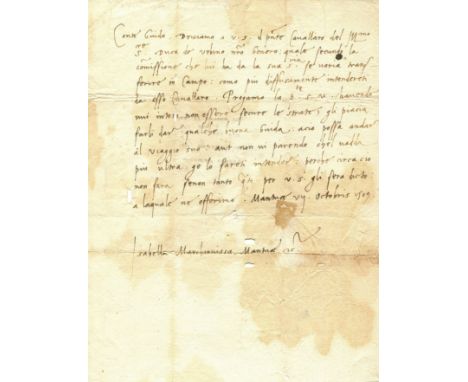 Conte Guido. Driciamo a v. s. il pnte Cavallaro del Illmo
s. Duca de Urbino nro Genero: quale secundo la
comissione che lui ha da la sua s.ria se voria trans
ferire in Campo: como più diffusamente intendereti
da esso Cavallaro. Pregamo la p.te s. v. havendo
nui inteso non essere secure le strate: gli piacia
farli dar qualche buona Guida, acio possa andar
al viaggio suo: aut non vi parendo chel vadi
più ultra ge lo fareti intender: perche circa cio
non farà senon tanto qto per v. s. gli sera dicto
a laquale ne offerimo. Mantuae vij octobris 1509
Isabella Marchionissa Mantuae